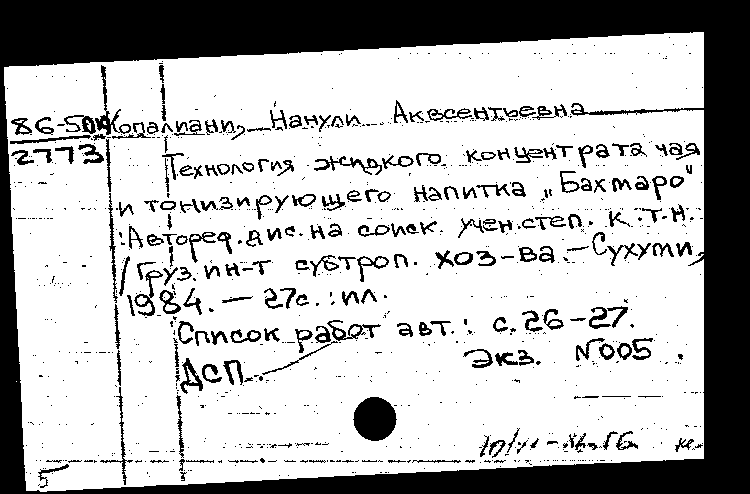 86-5 Копалиани, Нанули Аквсентьевна
2773
Технология жидкого концентрата чая
и тонизирующего напитка „Бахмаро"
: Автореф. дис. на соиск. учен. степ. к.т.н.
/ Груз. ин-т субтроп. хоз-ва. — Сухуми,
1984. — 27с. : ил.
Список работ авт.: с. 26-27.
ДСП. Экз. N005.
5